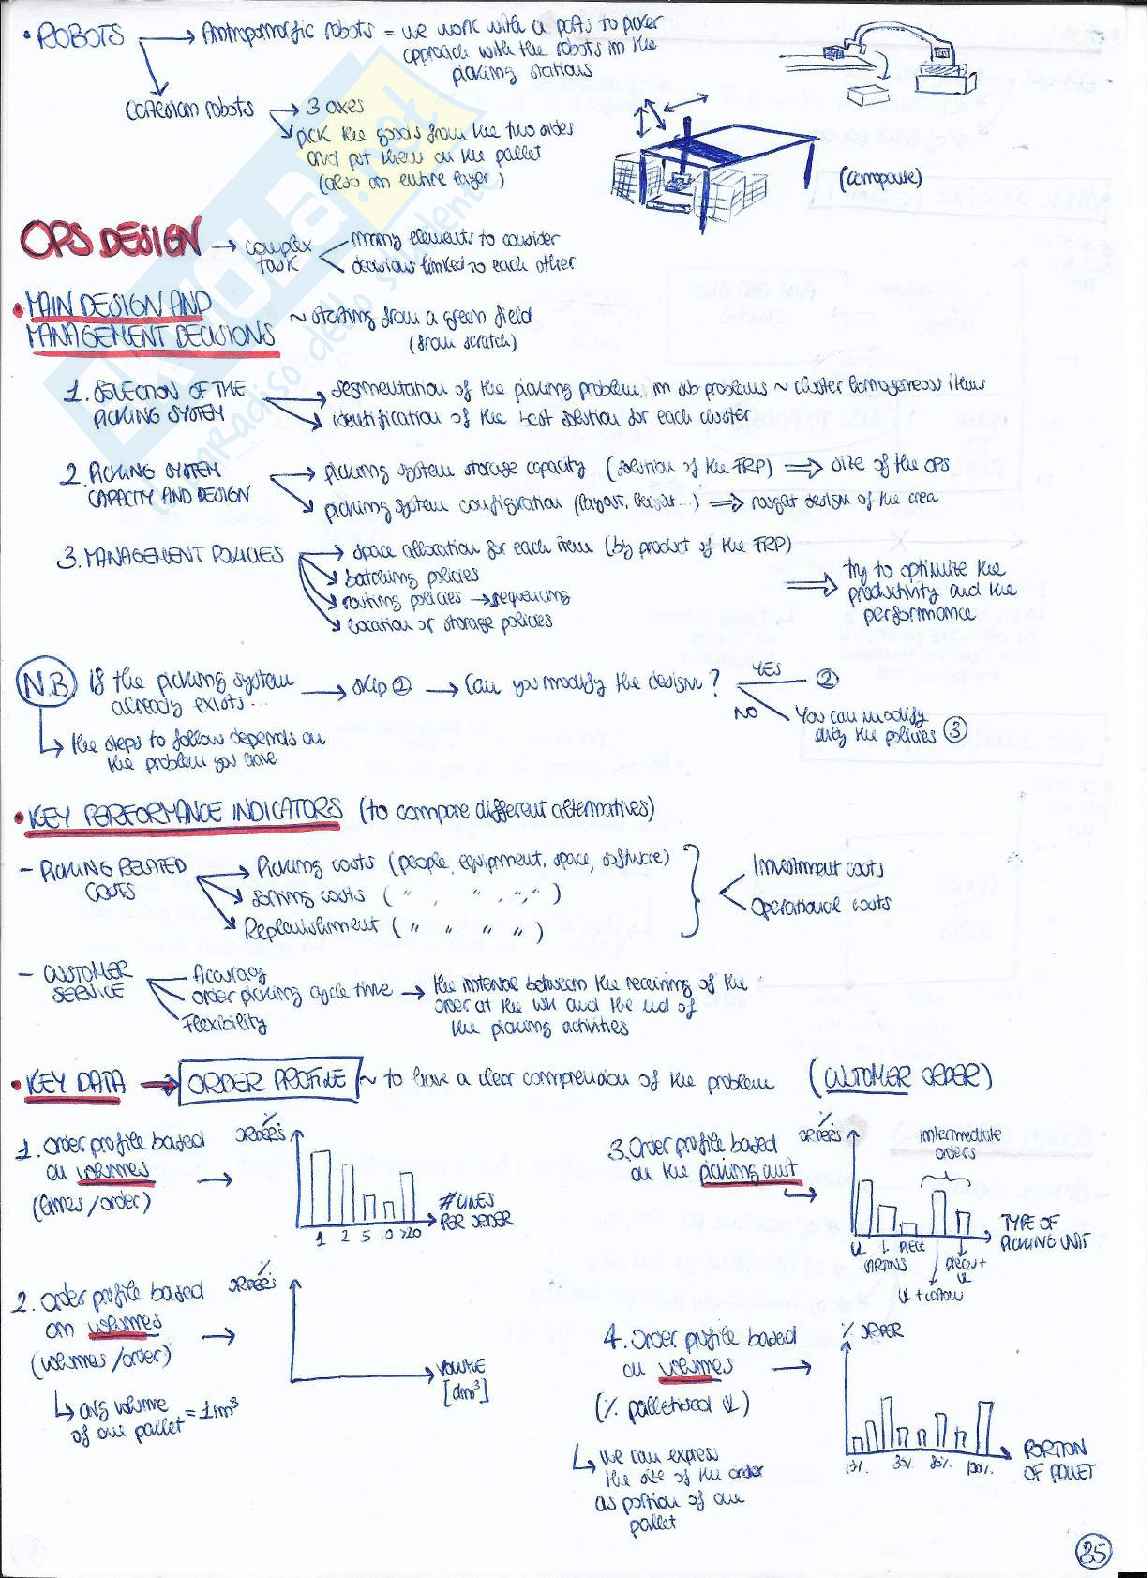 • ROBOTS → Antropomorfic robots = we work with a parts to picker
approach with the robots in the
picking stations
Cartesian robots → 3 axes
→ pick the goods from the two order
and put them on the pallet
(also an entire layer)
(compause)
OPS DESIGN → complex task
many elements to consider
decisions linked to each other
• MAIN DESIGN AND
MANAGEMENT DECISIONS ~ starting from a green field
(from scratch)
1. SELECTION OF THE
PICKING SYSTEM
→ segmentation of the picking problem in sub problems ~ cluster homogeneous items
→ identification of the best solution for each cluster
2. PICKING SYSTEM
CAPACITY AND DESIGN
→ picking system storage capacity (solution of the FRP) ⇒ size of the OPS
→ picking system configuration (layout, height...) ⇒ rought design of the area
3. MANAGEMENT POLICIES → space allocation for each item (by product of the FRP)
→ batching policies
→ routing policies → sequencing
→ location or storage policies
⇒ try to optimize the
productivity and the
performance
N.B. if the picking system
already exists... → skip ② → Can you modify the design? YES ②
NO You can modify
only the policies ③
↳ the steps to follow depends on
the problem you have
• KEY PERFORMANCE INDICATORS (to compare different alternatives)
- PICKING RELATED
COSTS
→ Picking costs (people, equipment, space, software)
→ Sorting costs ( " , " , " , " )
→ Replenishment ( " " " " )
Investment costs
Operational costs
- CUSTOMER
SERVICE
Accuracy
order picking cycle time → the interval between the receiving of the
order at the WH and the end of
the picking activities
Flexibility
• KEY DATA → ORDER PROFILE ~ to have a clear comprension of the problem (CUSTOMER ORDER)
1. Order profile based
on volumes →
(lines/order)
%
ORDERS
1 2 5 0 >20
# LINES
PER ORDER
2. Order profile based
on volumes →
(volumes/order)
↳ avg volume
of one pallet = 1 m³
%
ORDERS
VOLUME
[dm³]
3. Order profile based
on the picking unit
%
ORDERS
intermediate
orders
TYPE OF
PICKING UNIT
UL ↓ PIECE
CARTONS
UL + CARTON
4. Order profile based
on volumes →
(% palletised UL)
↳ we can express
the size of the order
as portion of one
pallet
% ORDER
100%
PORTION
OF PALLET
35